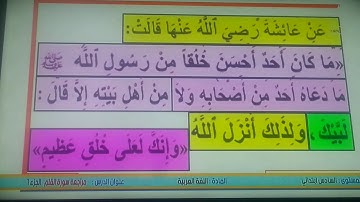 عَنْ عَائِشَةَ رَضِيَ ٱللَّهُ عَنْهَا قَالَتْ:
«مَا كَانَ أَحَدٌ أَحْسَنَ خُلُقاً مِنْ رَسُولِ ٱللَّهِ ﷺ
مَا دَعَاهُ أَحَدٌ مِنْ أَصْحَابِهِ وَلَا مِنْ أَهْلِ بَيْتِهِ إِلَّا قَالَ :
لَبَّيْكَ ، وَلِذَلِكَ أَنْزَلَ ٱللَّهُ «وَإِنَّكَ لَعَلَى خُلُقٍ عَظِيمٍ»
المستوى : السادس ابتدائي المادة : اللغة العربية عنوان الدرس : مراجعة سورة القلم الجزء 1